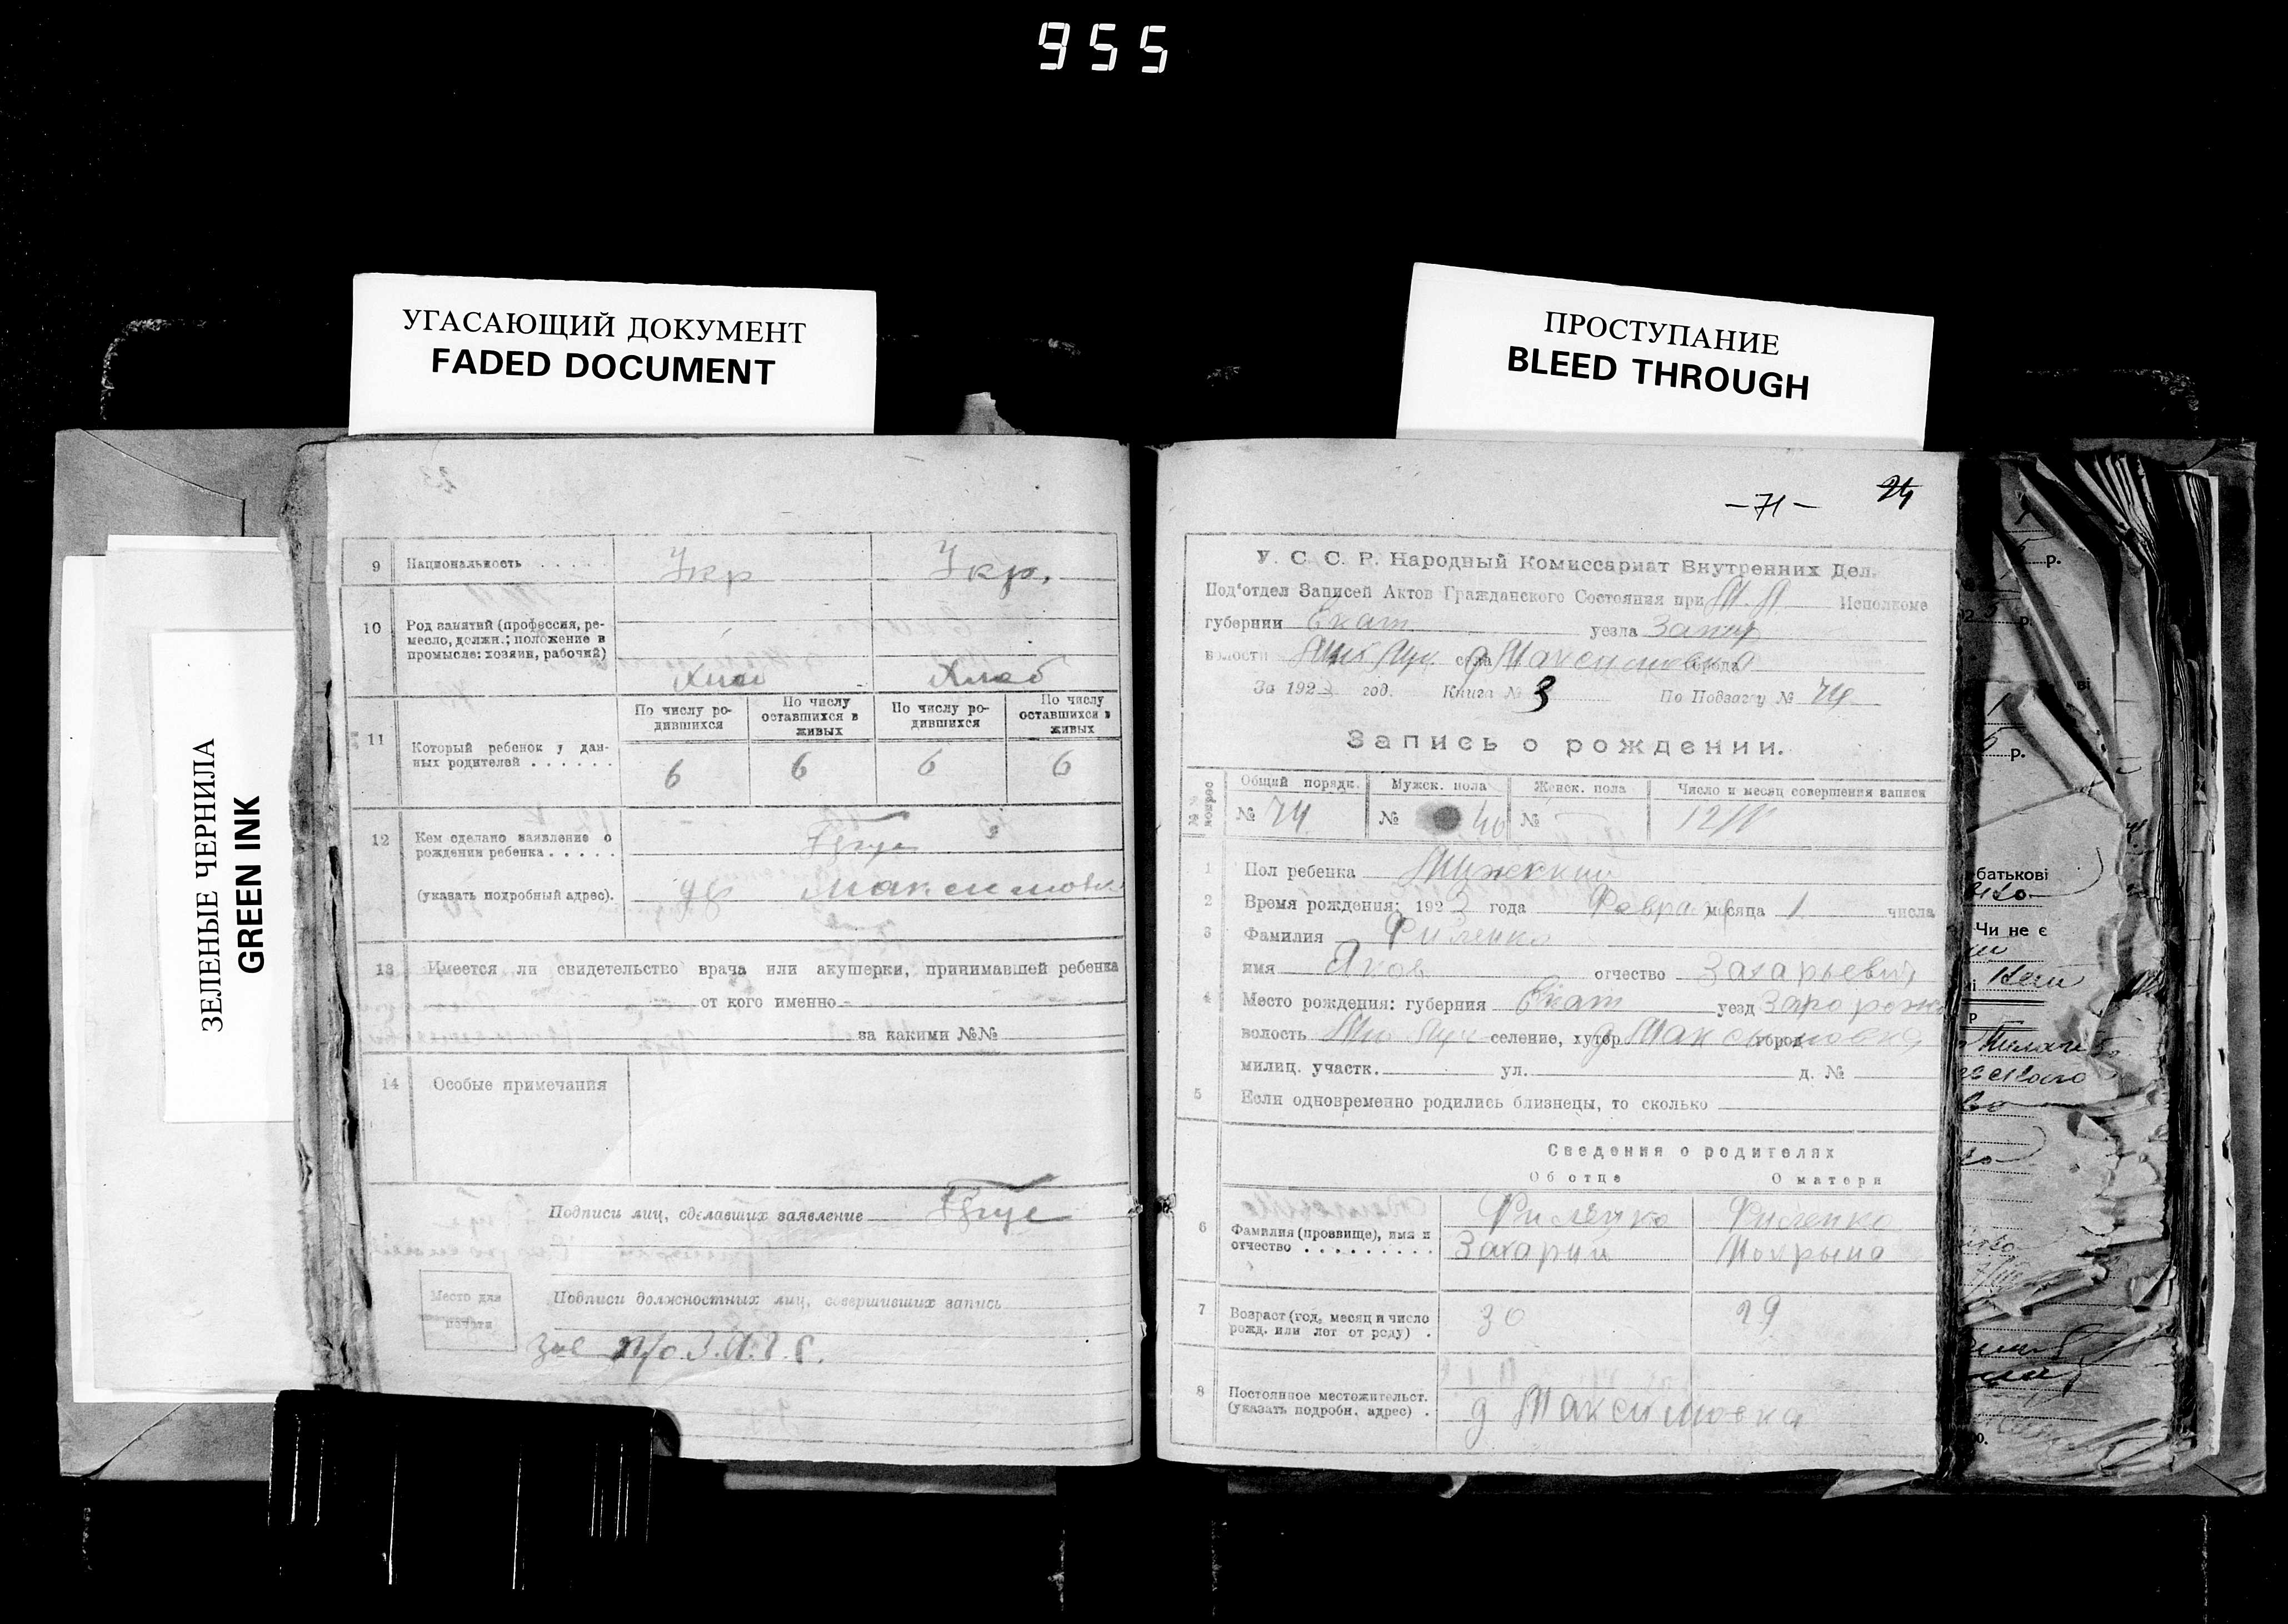 955
УГАСАЮЩИЙ ДОКУМЕНТ
FADED DOCUMENT
ПРОСТУПАНИЕ
BLEED THROUGH
ЗЕЛЕНЫЕ ЧЕРНИЛА
GREEN INK
23
9 Национальность . . . . . Укр Укр.
10 Род занятий (профессия, ре-
месло, должн.; положение в
промысле: хозяин, рабочий)
Хлеб Хлеб
По числу ро- По числу По числу ро- По числу
дившихся оставшихся в дившихся оставшихся в
живых живых
11 Который ребенок у дан-
ных родителей . . . . . . 6 6 6 6
12 Кем сделано заявление о
рождении ребенка . . . . .
(указать подробный адрес). дер Максимовка
13 Имеется ли свидетельство врача или акушерки, принимавшей ребенка
от кого именно
за какими №№
14 Особые примечания
Подписи лиц, сделавших заявление
Место для
печати
Подписи должностных лиц, совершивших запись
Зав П/о З.А.Г.С.
-71- 24
У. С. С. Р. Народный Комиссариат Внутренних Дел.
Под'отдел Записей Актов Гражданского Состояния при Исполкоме
губернии Екат уезда Запор
волости села д Максимовка города
За 1923 год. Книга № 3 По Подзагсу № 74
Запись о рождении.
№№ вопрос
Общий порядк. Мужск. пола Женск. пола Число и месяц совершения записи
№ 74 № 40 № 12/
1 Пол ребенка Мужской
2 Время рождения: 1923 года Февраля месяца 1 числа
3 Фамилия Филенко
имя Яков отчество Захарьевич
4 Место рождения: губерния Екат уезд Запорожс
волость селение, хутор д Максимовка город
милиц. участк. ул. д. №
5 Если одновременно родились близнецы, то сколько
Сведения о родителях
Об отце О матери
6 Фамилия (прозвище), имя и
отчество . . . . . . . . .
Филенко Филенко
Захарий Мокрына
7 Возраст (год, месяц и число
рожд. или лет от роду) . 30 29
8 Постоянное местожительст.
(указать подробн. адрес) . д Максимовка
р.
р.
батькові
Чи не є